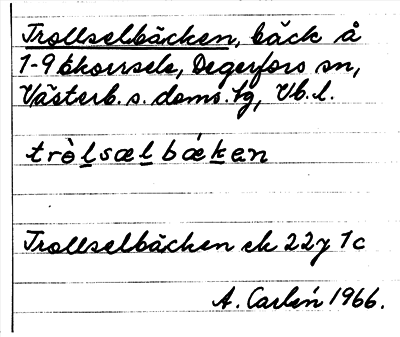 Trollselbäcken, bäck å
1-9 Ekorrsele, Degerfors sn,
Västerb. s. doms. tg, Vb. l.
tròlsælbákan
Trollselbäcken ek 22 J 1 c
A. Carlén 1966.